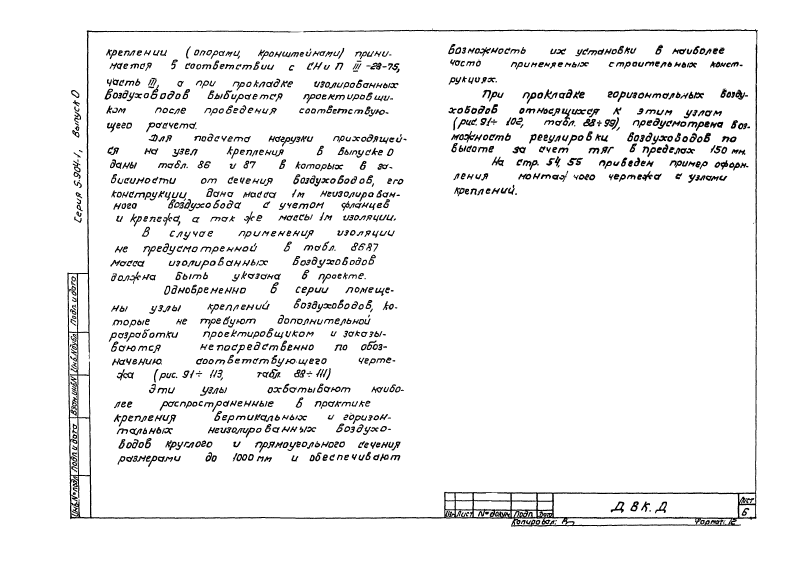 Серия 5.904-1, Выпуск 0
креплении (опорами, кронштейнами) прини-
мается в соответствии с СНиП III-28-75,
часть III, а при прокладке изолированных
воздуховодов выбирается проектировщи-
ком после проведения соответствую-
щего расчета.
Для подсчета нагрузки приходящей-
ся на узел крепления в Выпуске 0
даны табл. 86 и 87 в которых в за-
висимости от сечения воздуховодов, его
конструкции дана масса 1м неизолирован-
ного воздуховода с учетом фланцев
и крепежа, а так же массы 1м изоляции.
В случае применения изоляции
не предусмотренной в табл. 86,87
масса изолированных воздуховодов
должна быть указана в проекте.
Одновременно в серии помеще-
ны узлы креплений воздуховодов, ко-
торые не требуют дополнительной
разработки проектировщиком и заказы-
ваются непосредственно по обоз-
начению соответствующего черте-
жа (рис. 91÷ 113, табл. 88÷111)
Эти узлы охватывают наибо-
лее распространенные в практике
крепления вертикальных и горизон-
тальных неизолированных воздухо-
водов круглого и прямоугольного сечения
размерами до 1000 мм и обеспечивают
возможность их установки в наиболее
часто применяемых строительных конст-
рукциях.
При прокладке горизонтальных возду-
ховодов относящихся к этим узлам
(рис. 91÷ 102, табл. 88÷99), предусмотрена воз-
можность регулировки воздуховодов по
высоте за счет тяг в пределах 150 мм.
На стр. 54, 55 приведен пример оформ-
ления монтажного чертежа с узлами
креплений.
Инв.№подл. Подп и дата Взам.инв№ Инв.№дубл. Подп и дата
Изм. Лист № докум. Подп. Дата
Д ВК. Д
Лист
6
Копировал: Формат: 12